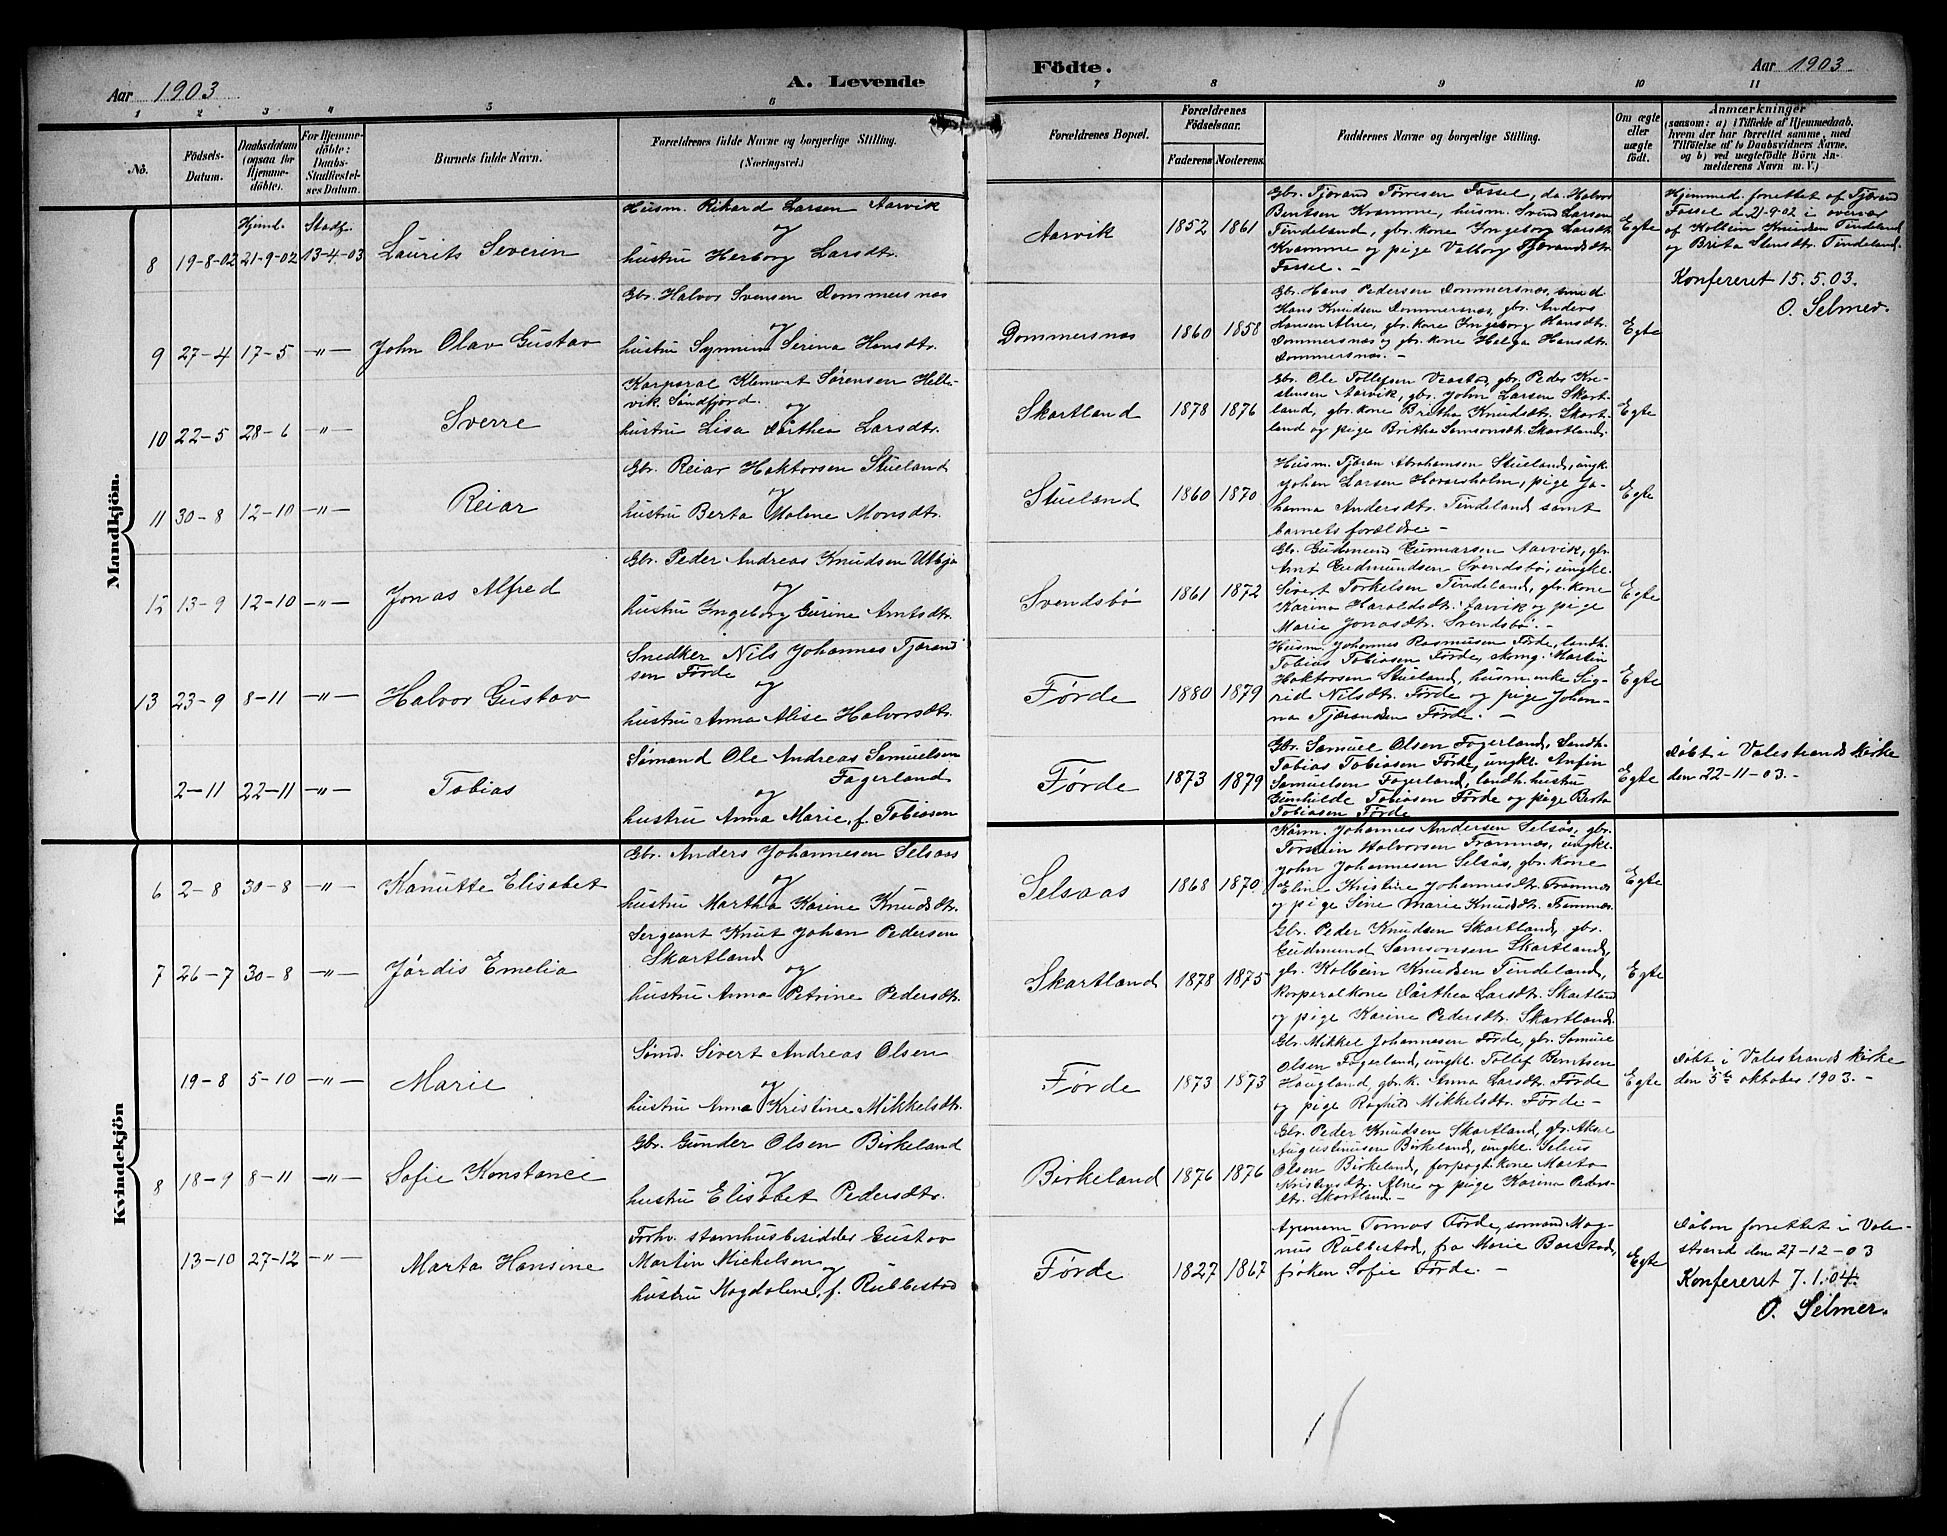 Aar 1903
A. Levende
Födte.
Aar 1903
1 2 3 4 5 6 7 8 9 10 11
No.
Födsels-
Datum.
Daabsdatum
(ogsaa for
Hjemme-
döbte).
For Hjemme-
döbte:
Daabs-
Stadfæstel-
ses Datum.
Barnets fulde Navn.
Forældrenes fulde Navne og borgerlige Stilling.
(Næringsvei.)
Forældrenes Bopæl.
Forældrenes
Födselsaar.
Faderens. Moderens.
Faddernes Navne og borgerlige Stilling.
Om ægte
eller
uægte
födt.
Anmærkninger
(saasom: a) i Tilfælde af Hjemmedaab,
hvem der har forrettet samme, med
Tilföielse af to Daabsvidners Navne,
og b) ved uægtefödte Börn An-
melderens Navn m. V.)
Mandkjön.
8 19-8-02 Hjemd. 21-9-02 Stadf. 13-4-03 Laurits Severin
Husm. Rikard Larsen Aarvik
og
hustru Herborg Larsdtr.
Aarvik 1852 1861
Gbr. Tjørand Tørresen Fossel, do. Halvor
Bentsen Kvamme, husm. Svend Larsen
Tindeland, gbr. kone Ingeborg Larsdtr.
Kvamme og pige Valborg Tjørandsdtr.
Fossel. -
Egte
Hjemmed. forrettet af Tjørand
Fossel d. 21-9-02 i overvær
af Kolbein Knudsen Tindeland
og Brita Stensdtr. Tindeland.
Konfereret 15.5.03.
O. Selmer.
9 27-4 17-5 -"- John Olav Gustav
Gbr. Halvor Svensen Dommersnæs
og
hustru Synnive Serina Hansdtr.
Dommersnæs 1860 1858
Gbr. Hans Pedersen Dommersnæs, smed
Hans Knudsen Dommersnæs, gbr. Anders
Hansen Alne, gbr. kone Ingeborg Hansdtr.
Dommersnæs og gbr. kone Helga Hansdtr.
Dommersnæs. -
Egte
10 22-5 28-6 -"- Sverre
Korporal Klemert Sørensen Helle-
vik. Søndfjord.
og
hustru Lisa Dårthea Larsdtr.
Skartland 1878 1876
Gbr. Ole Tollefsen Veastad, gbr. Peder Kri-
stensen Aarvik, gbr. John Larsen Skart-
land, gbr. kone Britha Knudsdtr. Skart-
land og pige Britha Samsonsdtr. Skartland.
Egte
11 30-8 12-10 -"- Reiar
Gbr. Reiar Haktorsen Stueland
og
hustru Berta Malene Monsdtr.
Stueland 1860 1870
Husm. Tjøran Abrahamsen Stueland, ungk.
Johan Larsen Hovarsholm, pige Jo-
hanna Andersdtr. Tindeland samt
barnets forældre. -
Egte
12 13-9 12-10 -"- Jonas Alfred
Gbr. Peder Andreas Knudsen Utbjo
og
hustru Ingeborg Gurine Arntsdtr.
Svendsbö 1861 1872
Gbr. Gudmund Gunnarsen Aarvik, gbr.
Arnt Gudmundsen Svendsbö, ungk.
Sivert Torkelsen Tindeland, gbr. kone
Karina Haraldsdtr. Aarvik og pige
Marie Jonasdtr. Svendsbö. -
Egte
13 23-9 8-11 -"- Halvor Gustav
Snedker Nils Johannes Tjørand
sen Förde
og
hustru Anna Alise Halvorsdtr.
Förde 1880 1879
Husm. Johannes Rasmusen Förde, landh.
Tobias Tobiasen Förde, skomg. Martin
Haktorsen Stueland, husm.enke Sig-
rid Nilsdtr. Förde og pige Johan-
na Tjørandsen Förde. -
Egte
2-11 22-11 -"- Tobias
Sømand Ole Andreas Samuelsen
Fagerland
og
hustru Anna Marie, f. Tobiasen
Förde 1873 1879
Gbr. Samuel Olsen Fagerland, Landh.
Tobias Tobiasen Förde, ungk. Anfin
Samuelsen Fagerland, landh. hustru
Gunhilde Tobiasen Förde og pige Berta
Tobiasen Förde
Egte
Döbt i Valestrands kirke
den 22-11-03. -
Kvindekjön
6 2-8 30-8 -"- Kanutte Elisabet
Gbr. Anders Johannesen Selsaas
og
hustru Martha Karine Knudsdtr.
Selsaas 1868 1870
Kårm. Johannes Andersen Selsås, gbr.
Torstein Halvorsen Framnæs, ungk.
John Johannesen Selsås, gbr. kone
Eline Kristine Johannesdtr. Framnæs
og pige Sine Marie Knudsdtr. Framnæs.
Egte
7 26-7 30-8 -"- Jórdis Emelia
Sergeant Knut Johan Pedersen
Skartland
og
hustru Anna Petrine Pedersdtr.
Skartland 1878 1875
Gbr. Peder Knudsen Skartland, gbr.
Gudmund Samsonsen Skartland,
gbr. Kolbein Knudsen Tindeland,
korporalkone Dårthea Larsdtr. Skartland
og pige Karine Pedersdtr. Skartland.
Egte
19-8 5-10 -"- Marie
Sømd. Sivert Andreas Olsen
og
hustru Anna Kristine Mikkelsdtr.
Förde 1873 1873
Gbr. Mikkel Johannesen Förde, gbr. Samuel
Olsen Fagerland, ungk. Tollef Berntsen
Haugland, gbr.k. Anna Larsdtr. Förde
og pige Raghild Mikkelsdtr. Förde -
Egte
Döbt i Valestrands kirke
den 5te oktober 1903. -
8 18-9 8-11 -"- Sofie Konstance
Gbr. Gunder Olsen Birkeland
og
hustru Elisabet Pedersdtr.
Birkeland 1876 1876
Gbr. Peder Knudsen Skartland, gbr. Aksel
Augustinusen Birkeland, ungk. Selius
Olsen Birkeland, forpagt. kone Marta
Alne og pige Karina Peders-
dtr. Skartland. -
Egte
13-10 27-12 -"- Marta Hansine
Forhv. stamhusbesidder Gustav
Martin Michelsen
og
hustru Magdalene, f. Rullestad
Förde 1827 1867
Tomas Förde, sømand Mag-
nus Rullestad, fru Marie Barstad,
frøken Sofie Förde. -
Egte
Dåben forrettet i Vale-
strand den 27-12-03
Konfereret 7.1.04.
O. Selmer.